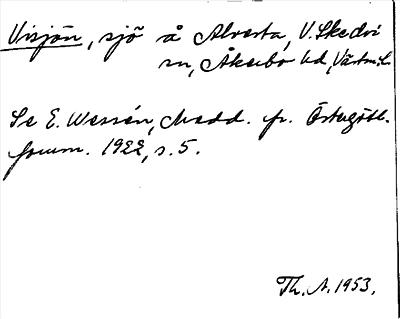 Visjön, sjö å Alvesta, V. Skedvi
sn, Åkerbo hd, Västm. L.
Se E. Wessén, Medd. fr. Östergötl.
fornm. 1922, s. 5.
Th. A. 1953.